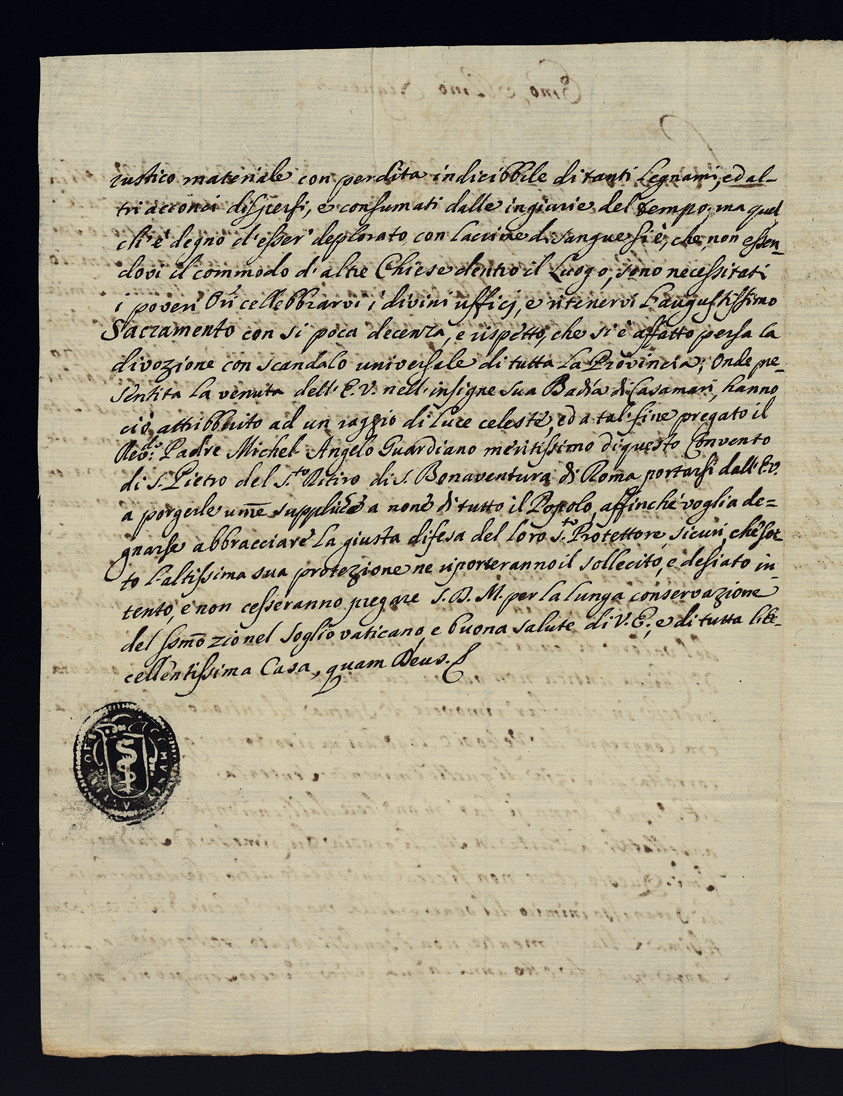 rustico materiale con perdita indicibbile di tanti Legnami, ed al-
tri acconci dispersi, e consumati dalle ingiurie del Tempo, ma quel
ch'è degno d'esser deplorato con lacrime di sangue si è, che non essen-
dovi il commodo d'altre Chiese dentro il Luogo, sono necessitati
i poveri Ori cellebbrarvi i divini ufficj, e ritenervi l'augustissimo
Sacramento con si poca decenza, e rispetto, che si è affatto persa la
divozione con scandalo universale di tutta la Provincia; Onde pre-
sentita la venuta dell'E.V. nell'insigne sua Badia di Casamari, hanno
ciò attribbuito ad un raggio di Luce celeste, ed a tal fine pregato il
Revdo: Padre Michel Angelo Guardiano meritissimo di questo Convento
di S. Pietro del Sto Ritiro di S. Bonaventura di Roma portarsi dall'E.V.
a porgerle ume suppliche a nome di tutto il Popolo, affinchè voglia de=
gnarse abbracciare la giusta difesa del loro Sto Protettore, sicuri, che sot-
to l'altissima sua protezione ne riporteranno il sollecito, e desiato in-
tento, e non cesseranno pregare S.D.M. per la lunga conservazione
del Ssmo zio nel soglio vaticano, e buona salute di V.E., e di tutta
cellentissima Casa, quam Deus.